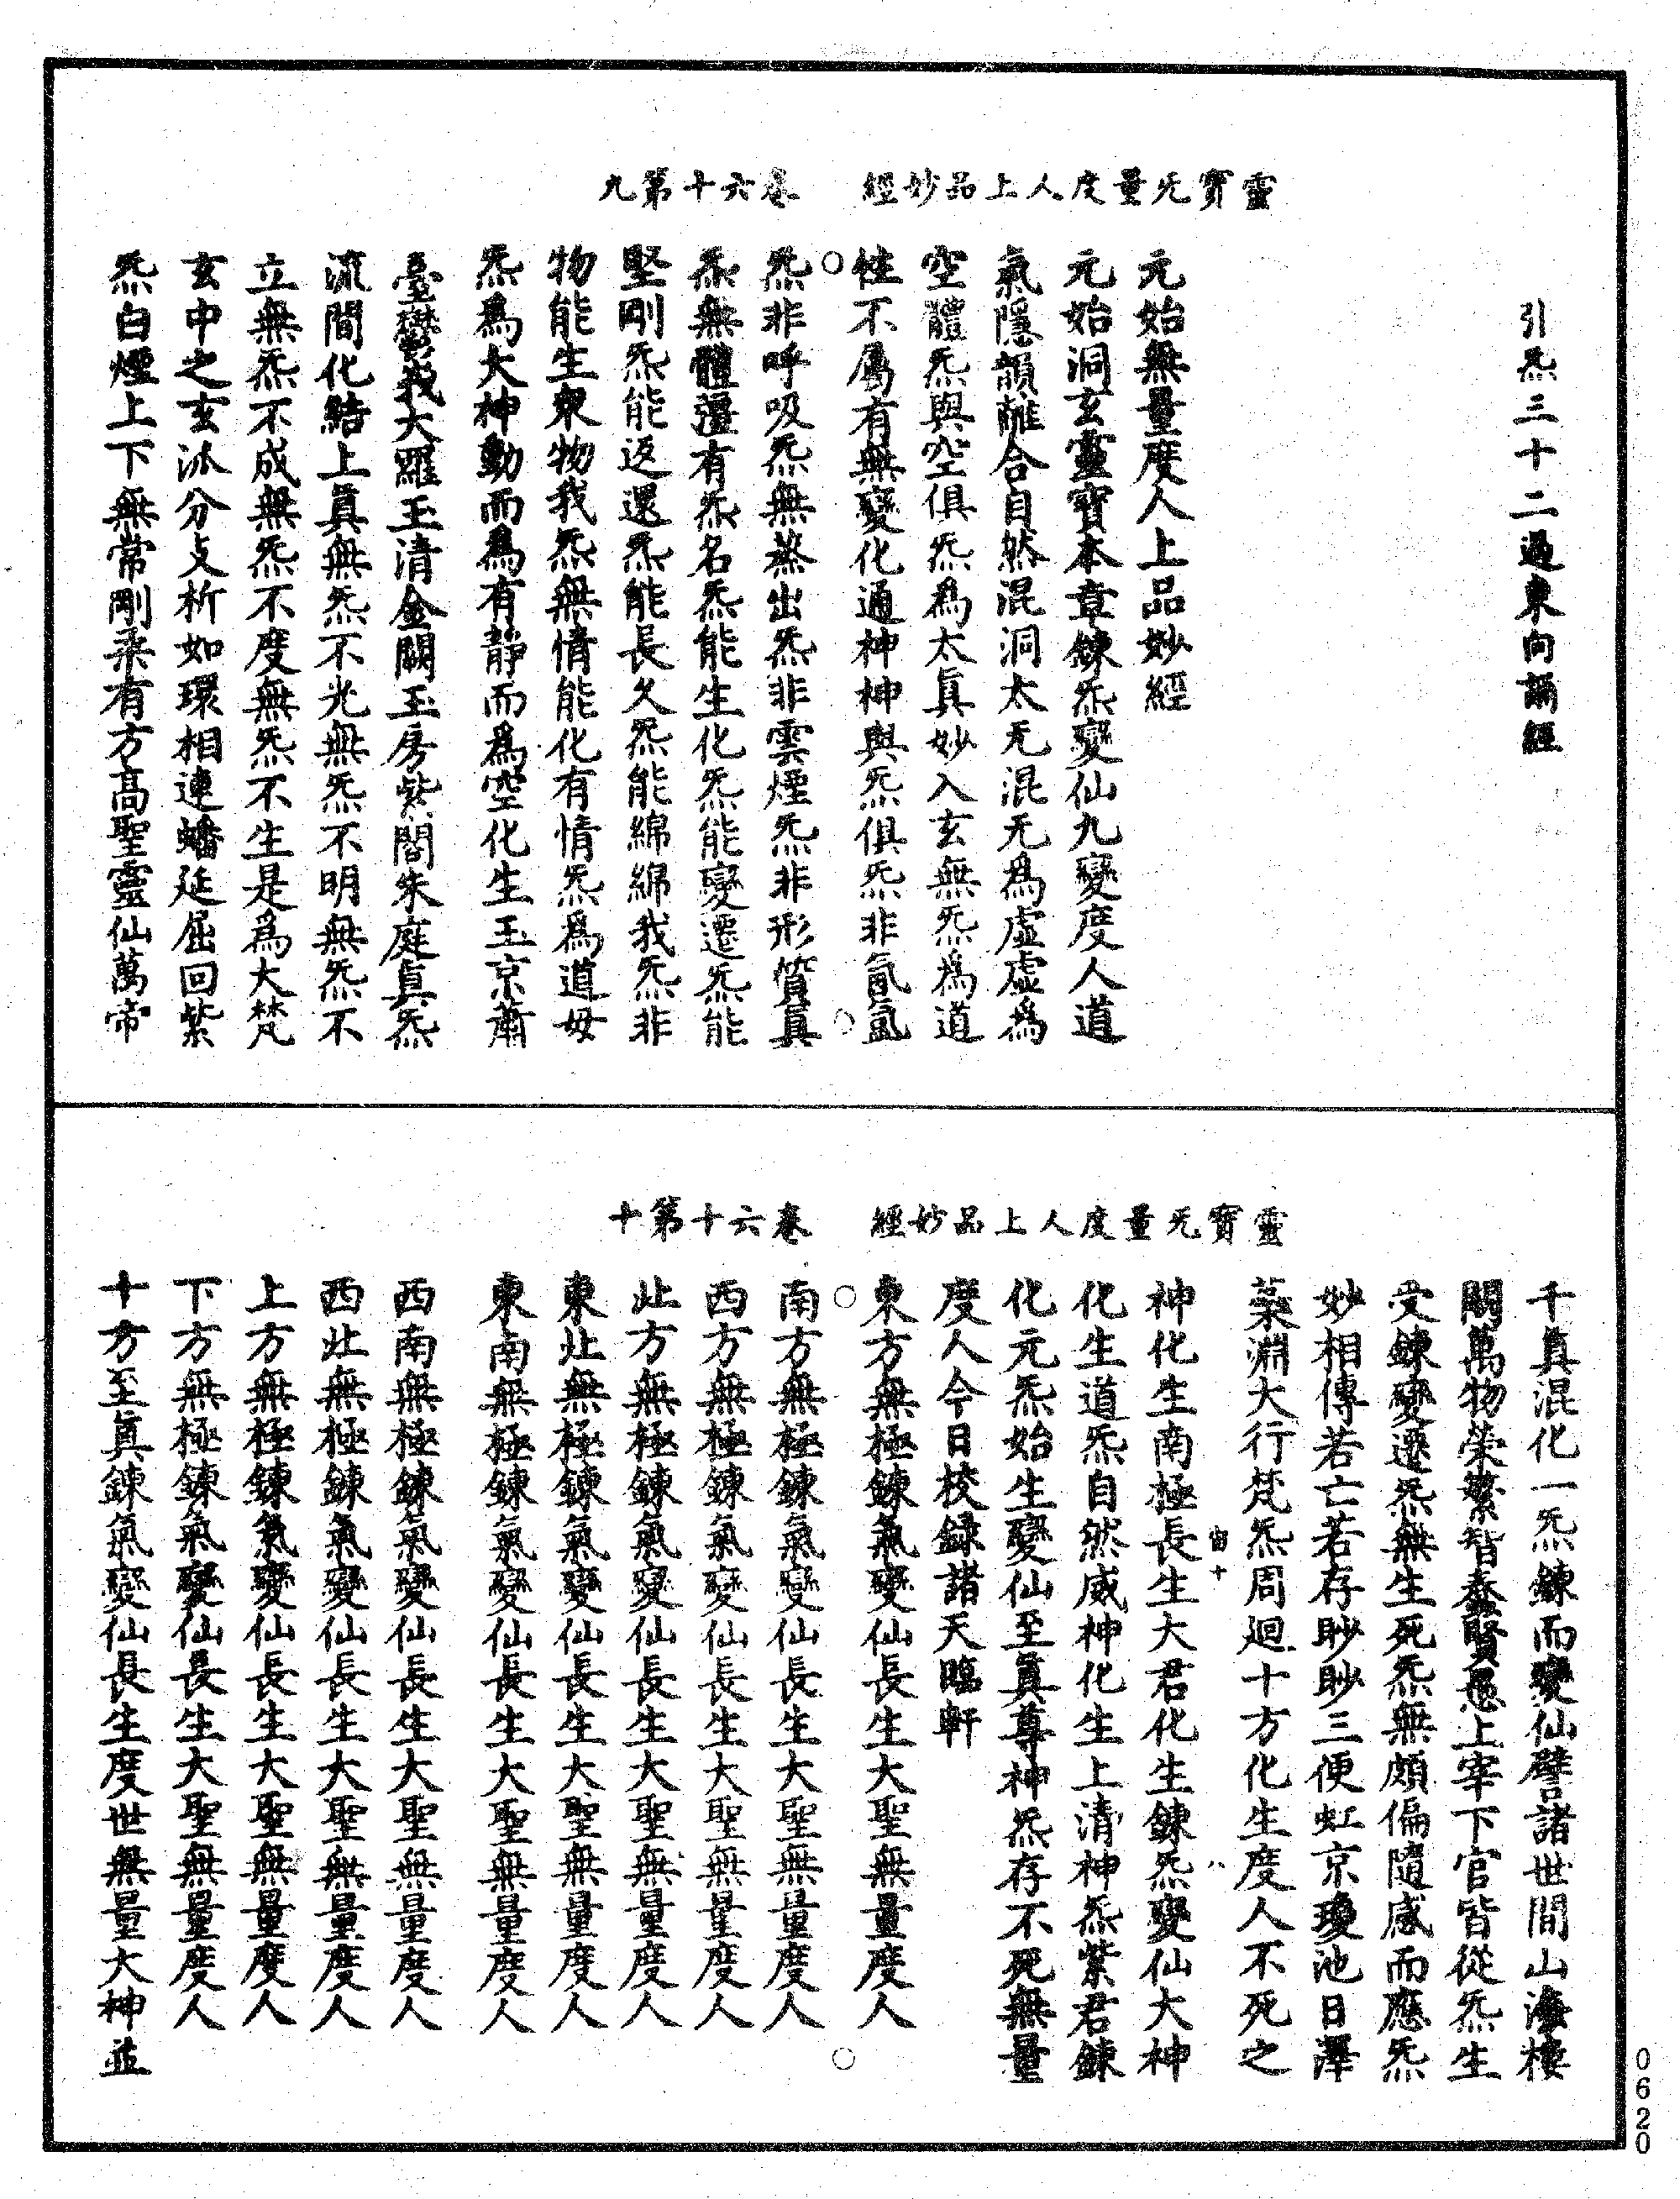 靈寶无量度人上品妙經 卷六十第九
引炁三十二過東向誦經
元始無量度人上品妙經
元始洞玄靈寶本章鍊炁變仙九變度人道
氣隱韻離合自然混洞太无混无為虛虛為
空體炁與空俱炁為太真妙入玄無炁為道
性不屬有無變化通神神與炁俱炁非氤氳
炁非呼吸炁無蒸出炁非雲煙炁非形質真
炁無體溰有炁名炁能生化炁能變遷炁能
堅剛炁能返還炁能長久炁能綿綿我炁非
物能生眾物我炁無情能化有情炁為道母
炁為大神動而為有靜而為空化生玉京蕭
臺鬱我大羅玉清金闕玉房紫閣朱庭真炁
流間化結上真無炁不光無炁不明無炁不
立無炁不成無炁不度無炁不生是為大梵
玄中之玄派分支析如環相連蟠延屈回紫
炁白煙上下無常剛柔有方高聖靈仙萬帝
靈寶无量度人上品妙經 卷六十第十
千真混化一炁鍊而變仙譬諸世間山海樓
闕萬物榮繁智蠢賢愚上宰下官皆從炁生
受鍊變遷炁無生死炁無頗偏隨感而應炁
妙相傳若亡若存眇眇三便虹京瓊池日澤
蘂淵大行梵炁周迴十方化生度人不死之
宙十 八
神化生南極長生大君化生鍊炁變仙大神
化生道炁自然威神化生上清神炁紫君鍊
化元炁始生變仙至真尊神炁存不死無量
度人今日校錄諸天臨軒
東方無極鍊氣變仙長生大聖無量度人
南方無極鍊氣變仙長生大聖無量度人
西方無極鍊氣變仙長生大聖無量度人
北方無極鍊氣變仙長生大聖無量度人
東北無極鍊氣變仙長生大聖無量度人
東南無極鍊氣變仙長生大聖無量度人
西南無極鍊氣變仙長生大聖無量度人
西北無極鍊氣變仙長生大聖無量度人
上方無極鍊氣變仙長生大聖無量度人
下方無極鍊氣變仙長生大聖無量度人
十方至真鍊氣變仙長生度世無量大神並
0620